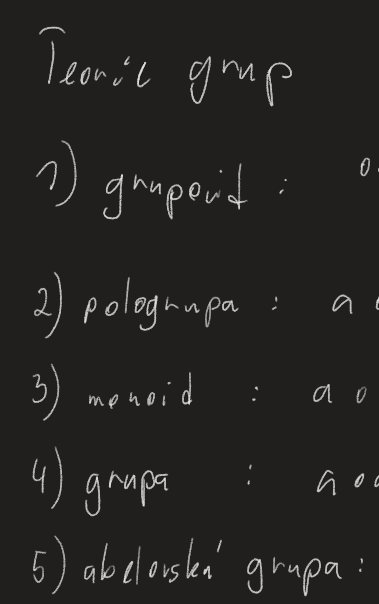 Teorie grup
1) grupoid :
2) pologrupa : a
3) monoid : a o
4) grupa : a o
5) abelovská grupa :